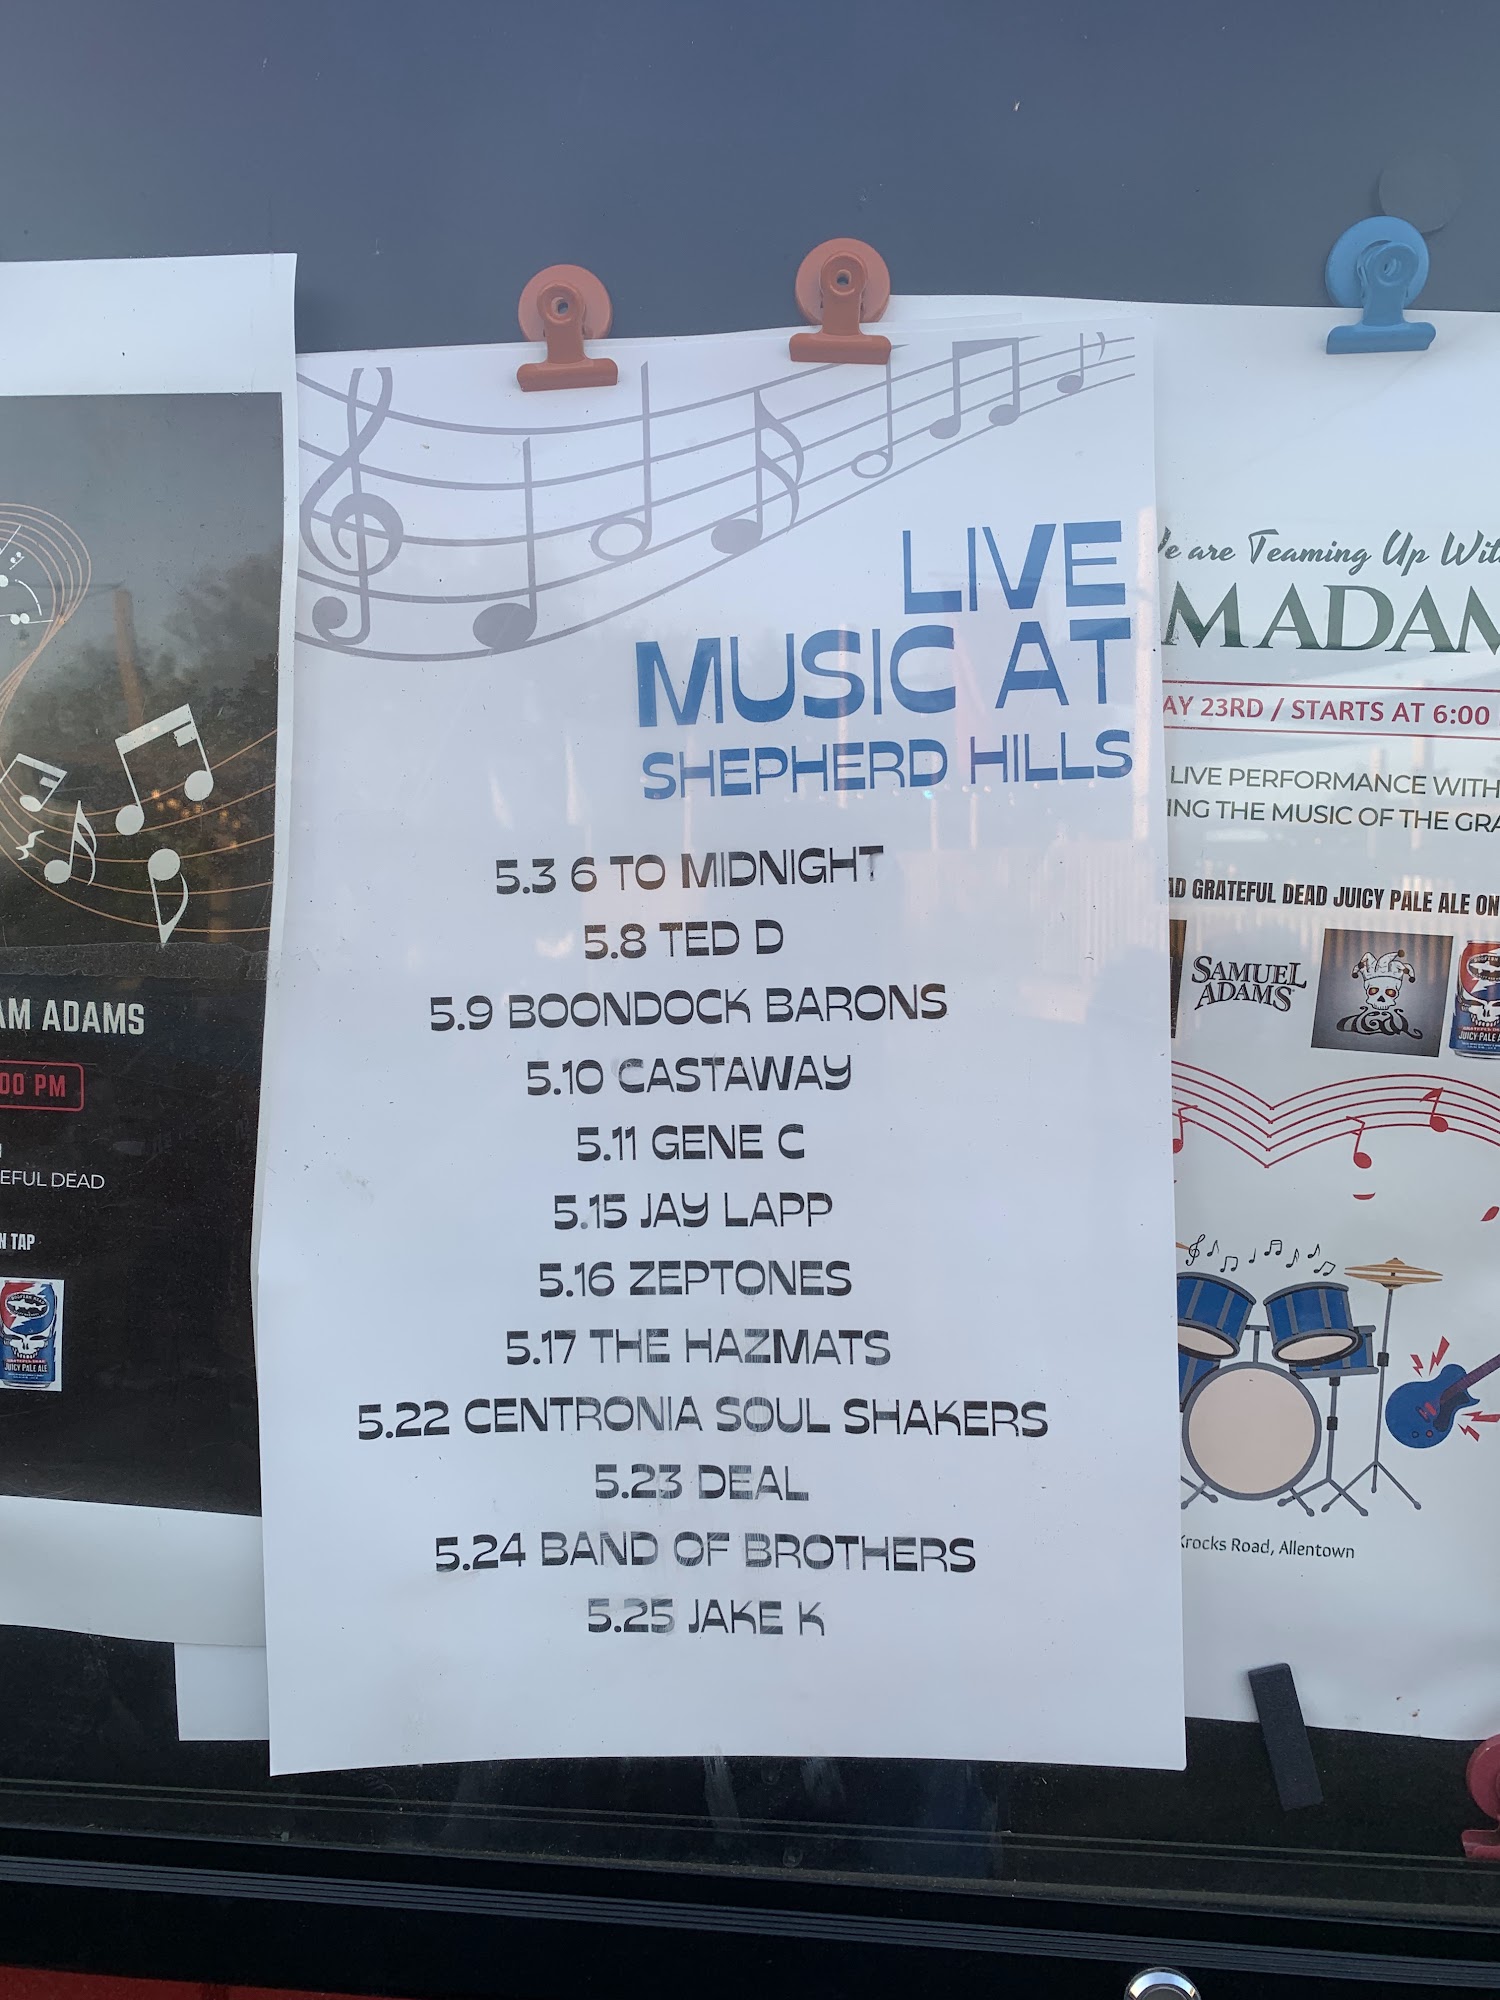 AM ADAMS
00 PM
EFUL DEAD
N TAP
JUICY PALE ALE
LIVE
MUSIC AT
SHEPHERD HILLS
5.3 6 TO MIDNIGHT
5.8 TED D
5.9 BOONDOCK BARONS
5.10 CASTAWAY
5.11 GENE C
5.15 JAY LAPP
5.16 ZEPTONES
5.17 THE HAZMATS
5.22 CENTRONIA SOUL SHAKERS
5.23 DEAL
5.24 BAND OF BROTHERS
5.25 JAKE K
e are Teaming Up Wit
M ADAM
AY 23RD / STARTS AT 6:00
LIVE PERFORMANCE WITH
ING THE MUSIC OF THE GRA
AD GRATEFUL DEAD JUICY PALE ALE ON
SAMUEL
ADAMS
DEAL
JUICY PALE A
Krocks Road, Allentown